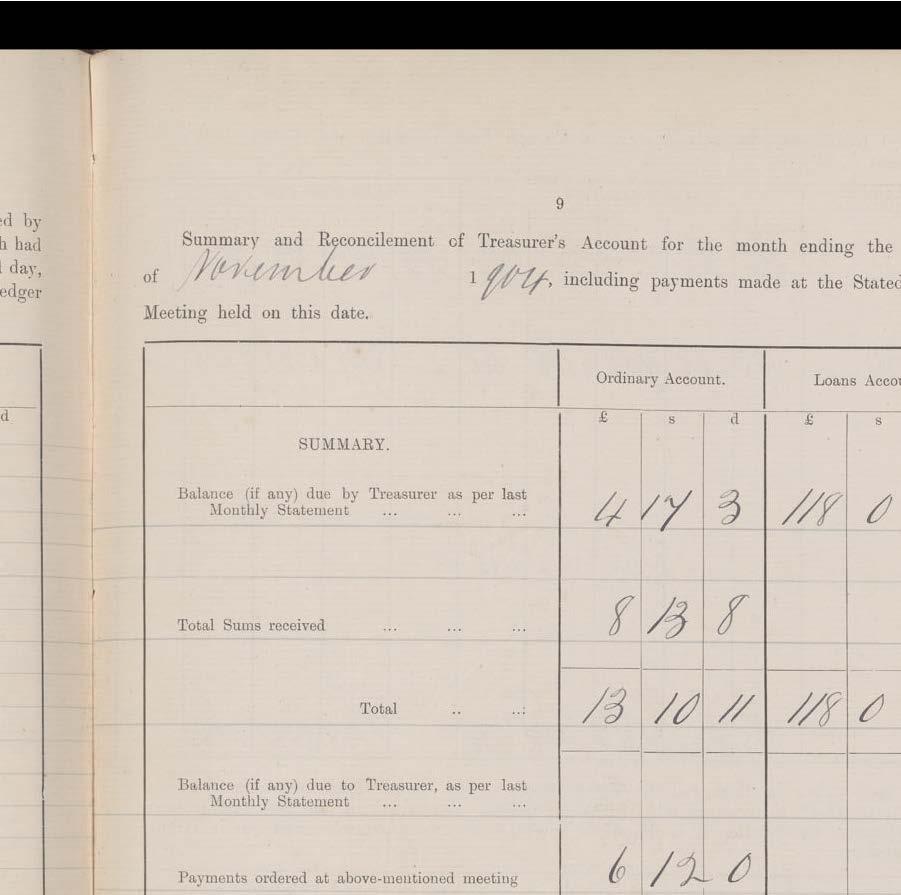 ed by
h had
l day,
edger
d
9
Summary and Reconcilement of Treasurer's Account for the month ending the
of November 1904, including payments made at the Stated
Meeting held on this date.
Ordinary Account. Loans Accou
£ s d £ s
SUMMARY.
Balance (if any) due by Treasurer as per last
Monthly Statement ... ... ... 4 17 3 118 0
Total Sums received ... ... ... 8 13 8
Total .. ..: 13 10 11 118 0
Balance (if any) due to Treasurer, as per last
Monthly Statement ... ... ...
Payments ordered at above-mentioned meeting 6 12 0